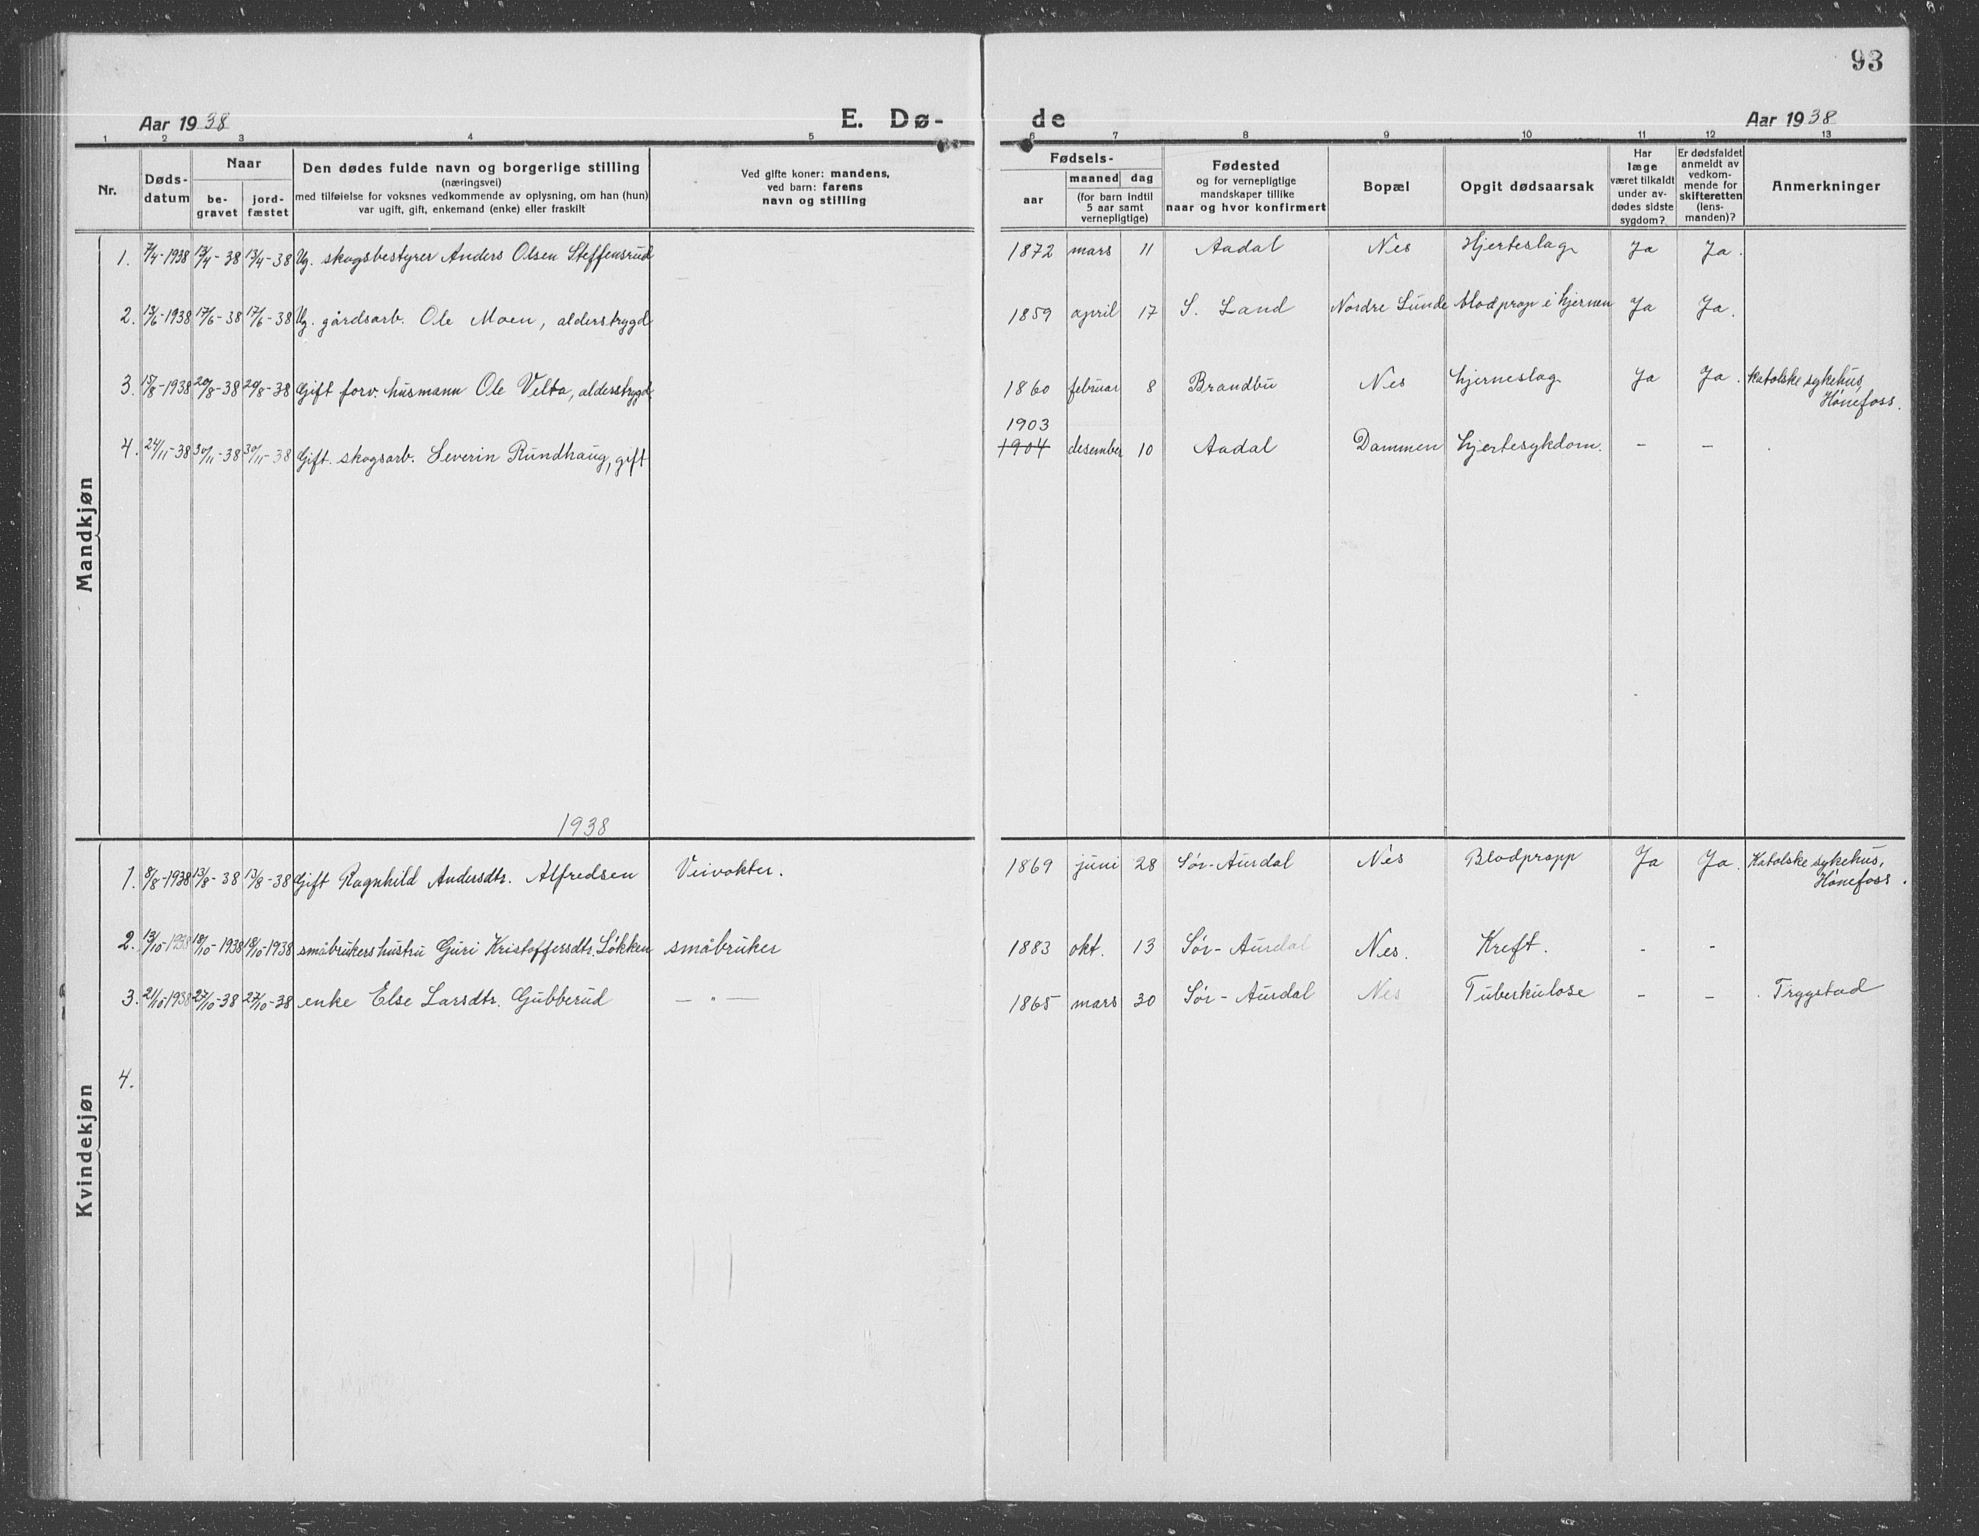 93
Aar 1938 E. Dø- de Aar 1938
1 2 3 4 5 6 7 8 9 10 11 12 13
Nr.
Døds-
datum
Naar
be-
gravet
jord-
fæstet
Den dødes fulde navn og borgerlige stilling
(næringsvei)
med tilføielse for voksnes vedkommende av oplysning, om han (hun)
var ugift, gift, enkemand (enke) eller fraskilt
Ved gifte koner: mandens,
ved barn: farens
navn og stilling
Fødsels-
aar
maaned dag
(for barn indtil
5 aar samt
vernepligtige)
Fødested
og for vernepligtige
mandskaper tillike
naar og hvor konfirmert
Bopæl
Opgit dødsaarsak
Har
læge
været tilkaldt
under av-
dødes sidste
sygdom?
Er dødsfaldet
anmeldt av
vedkom-
mende for
skifteretten
(lens-
manden)?
Anmerkninger
Mandkjøn
1. 7/4-1938 13/4-38 13/4-38 Ug. skogsbestyrer Anders Olsen Steffensrud 1872 mars 11 Aadal Nes Hjerteslag Ja Ja.
2. 13/6-1938 17/6-38 17/6-38 Ug. gårdsarb. Ole Moen, alderstrygd 1859 april 17 S. Land Nordre Lunde blodprop i hjernen Ja Ja.
3. 15/8-1938 20/8-38 20/8-38 Gift forv. husmann Ole Velta, alderstrygd 1860 februar 8 Brandbu Nes hjerneslag Ja Ja. Katolske sykehus,
Hønefoss.
1903
4. 24/11-38 30/11-38 30/11-38 Gift. skogsarb. Severin Rundhaug, gift 1904 desember 10 Aadal Dammen hjertesykdom. - -
1938
Kvindekjøn
1. 8/8-1938 13/8-38 13/8-38 Gift Ragnhild Andersdtr. Alfredsen Veivokter. 1869 juni 28 Sør-Aurdal Nes Blodpropp Ja Ja. Katolske sykehus,
Hønefoss.
2. 13/10-1938 18/10-1938 18/10-1938 småbrukers hustru Guri Kristoffersdtr. Løkken småbruker 1883 okt. 13 Sør-Aurdal Nes. Kreft. - -
3. 21/10 1938 27/10-38 27/10-38 enke Else Larsdtr. Gubberud — " — 1865 mars 30 Sør-Aurdal Nes Tuberkulose - - Trygstad
4.